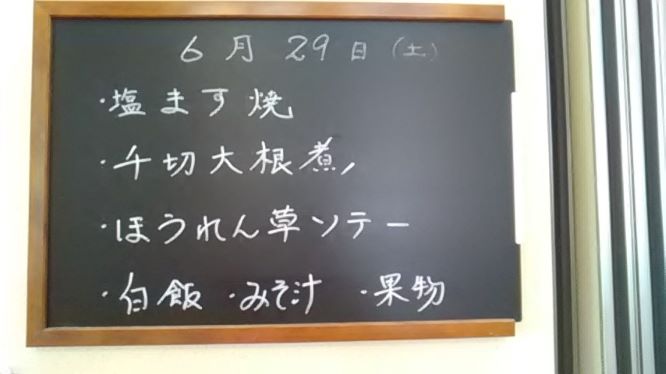 6月29日(土)
・塩ます焼
・千切大根煮ノ
・ほうれん草ソテー
・白飯 ・みそ汁 ・果物